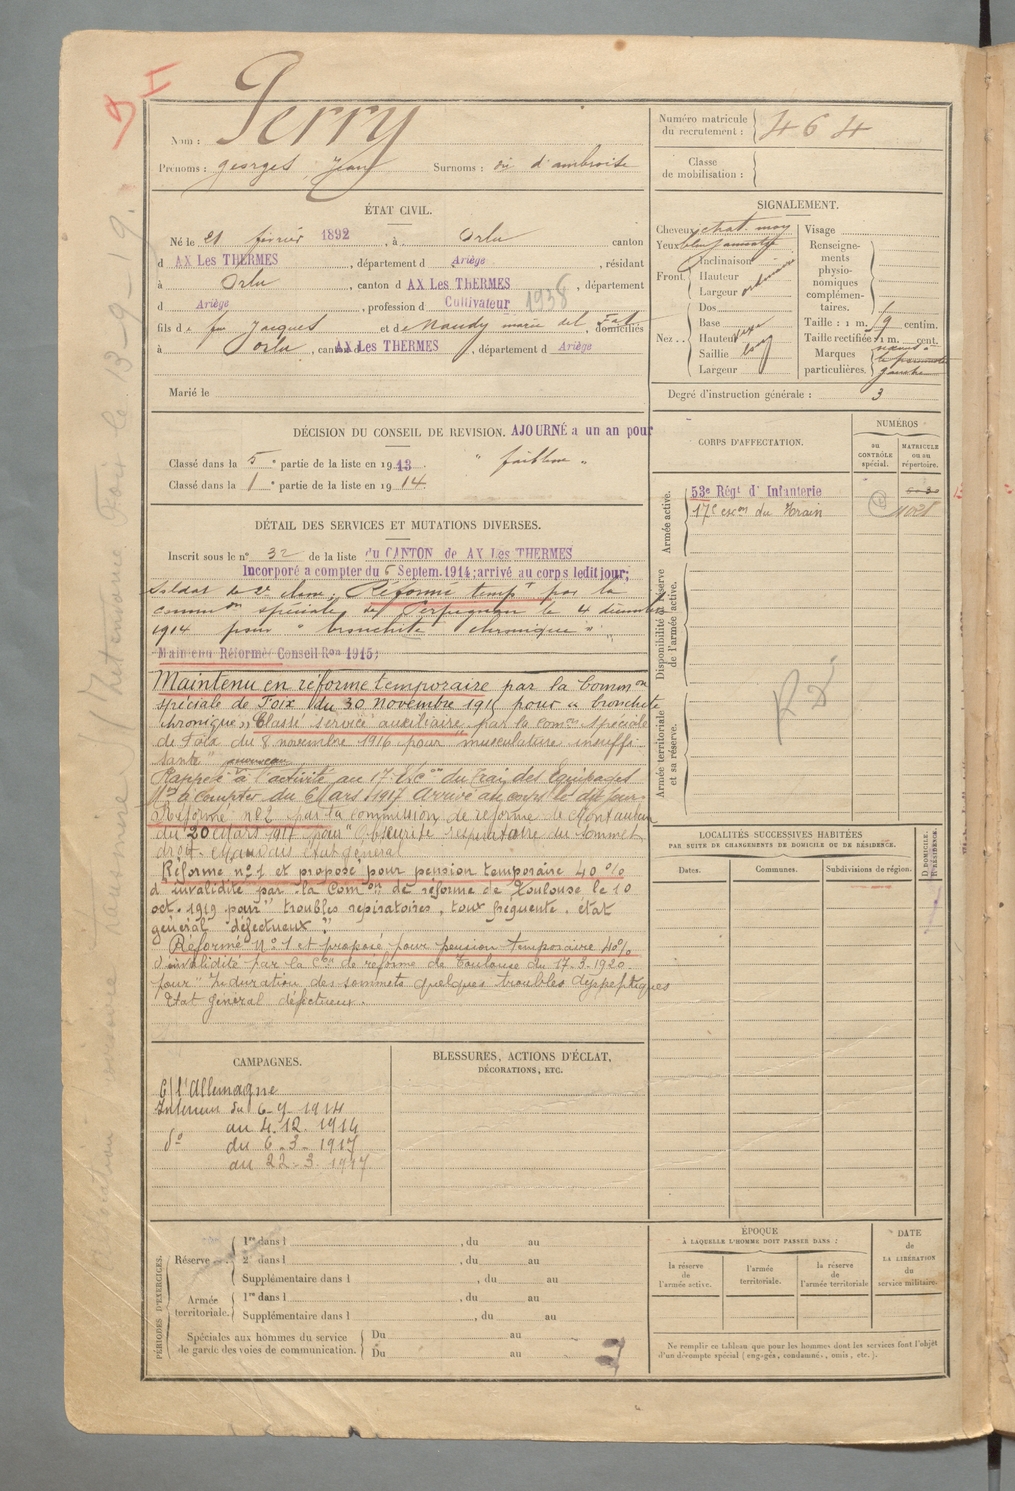 I
Nom : Perry
Prénoms : georges Jean Surnoms : dit d'ambroise
Numéro matricule du recrutement : 464
Classe de mobilisation :
ÉTAT CIVIL.
Né le 21 février 1892, à Orlu canton
d AX Les THERMES, département d Ariège, résidant
à Orlu, canton d AX Les THERMES, département
d Ariège, profession d Cultivateur 1938
fils de feu Jacques et de Naudy marie del, domiciliés
à Orlu, canton d AX Les THERMES, département d Ariège
Marié le
SIGNALEMENT.
Cheveux chat. moy
Yeux bleu
Front. Inclinaison
Hauteur
Largeur ordinaire
Nez.. Dos
Base
Hauteur
Saillie
Largeur
Visage
Renseignements physionomiques complémentaires.
Taille : 1 m. 19 centim.
Taille rectifiée : 1 m. cent.
Marques particulières. gauche
Degré d'instruction générale : 3
DÉCISION DU CONSEIL DE REVISION. AJOURNÉ a un an pour
Classé dans la 5e partie de la liste en 1913. " faiblesse "
Classé dans la 1e partie de la liste en 1914.
DÉTAIL DES SERVICES ET MUTATIONS DIVERSES.
Inscrit sous le n° 32 de la liste du CANTON de AX Les THERMES
Incorporé a compter du 6 Septem. 1914; arrivé au corps ledit jour;
Soldat de 2e classe; Réformé tempt par la
common spéciale de Perpignan le 4 décembre
1914 pour " bronchite chronique "
Maintenu Réformé Conseil Ron 1915;
Maintenu en réforme temporaire par la Common
spéciale de Foix du 30 novembre 191 pour " bronchite
chronique", Classé service auxiliaire par la Comon spéciale
de Foix du 8 novembre 1916 pour "musculature insuffi
sante"
Rappelé à l'activité au 17e Econ du Train des Equipages
Mres à compter du 6 Mars 1917 Arrivé au corps le dit jour.
Réformé n° 2 par la commission de réforme de Montauban
du 20 Mars 1917 pour "Obscurité respiratoire du sommet
droit. Mauvais état général
Réformé n° 1 et proposé pour pension temporaire 40 %
d'invalidité par la Comon de réforme de Toulouse le 10
oct. 1919 pour " troubles respiratoires, toux fréquente. état
général défectueux "
Réformé N° 1 et proposé pour pension temporaire 40%
d'invalidité par la Con de réforme de Toulouse du 17.3.1920
pour " Induration des sommets quelques troubles dyspeptiques
Etat général défectueux.
CORPS D'AFFECTATION.
NUMÉROS
au CONTRÔLE spécial.
MATRICULE ou au répertoire.
Armée active.
53e Régt d'Infanterie
17e escon du Train
Disponibilité ou réserve de l'armée active.
Armée territoriale et sa réserve.
LOCALITÉS SUCCESSIVES HABITÉES
PAR SUITE DE CHANGEMENTS DE DOMICILE OU DE RÉSIDENCE.
Dates.
Communes.
Subdivisions de région.
D. DOMICILE. R. RÉSIDENCE.
CAMPAGNES.
C/ l'Allemagne
Intérieur du 6-9-1914
au 4.12.1914
do du 6.3.1917
au 22.3.1917
BLESSURES, ACTIONS D'ÉCLAT,
DÉCORATIONS, ETC.
PÉRIODES D'EXERCICES.
Réserve 1re dans l , du au
2e dans l , du au
Supplémentaire dans l , du au
Armée territoriale. 1re dans l , du au
Supplémentaire dans l , du au
Spéciales aux hommes du service de garde des voies de communication. Du au
Du au
ÉPOQUE
À LAQUELLE L'HOMME DOIT PASSER DANS :
la réserve de l'armée active.
l'armée territoriale.
la réserve de l'armée territoriale
DATE de LA LIBÉRATION du service militaire.
Ne remplir ce tableau que pour les hommes dont les services font l'objet
d'un décompte spécial (engagés, condamnés, omis, etc.).